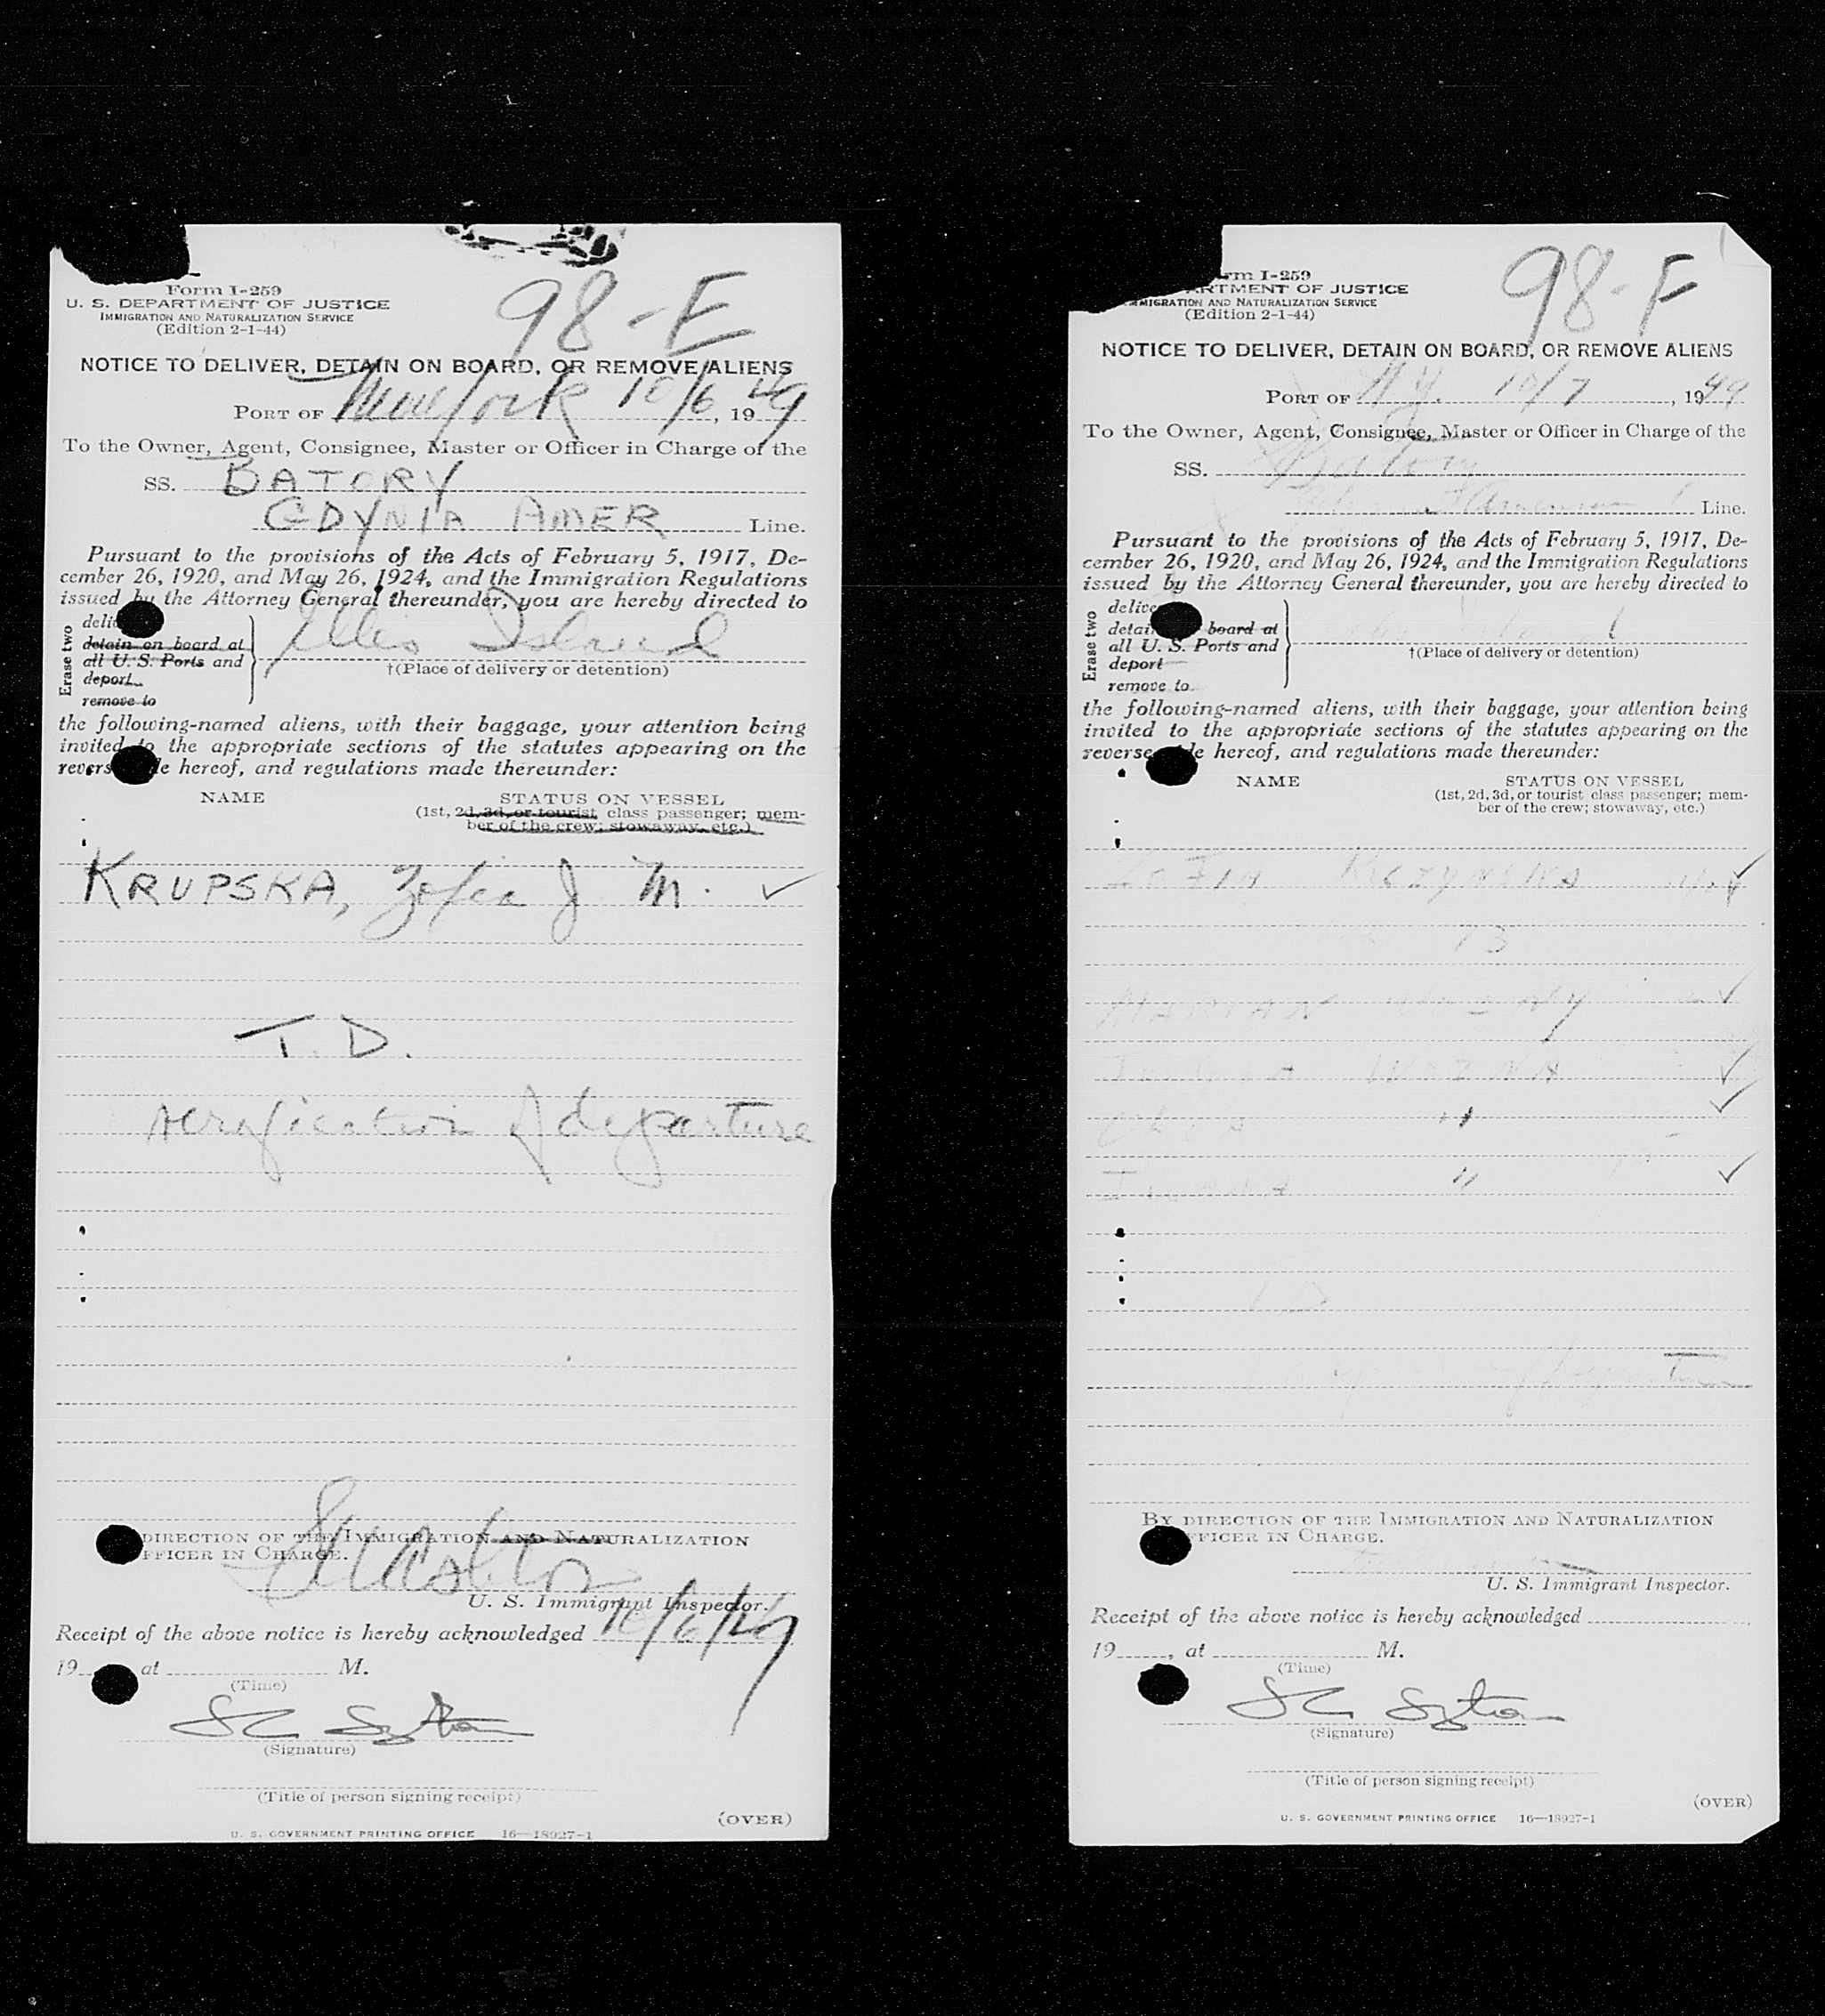 Form I-259
U. S. DEPARTMENT OF JUSTICE
IMMIGRATION AND NATURALIZATION SERVICE
(Edition 2-1-44)
98-E
NOTICE TO DELIVER, DETAIN ON BOARD, OR REMOVE ALIENS
PORT OF New York 10/6, 1949
To the Owner, Agent, Consignee, Master or Officer in Charge of the
SS. BATORY
GDYNIA AMER Line.
Pursuant to the provisions of the Acts of February 5, 1917, De-
cember 26, 1920, and May 26, 1924, and the Immigration Regulations
issued by the Attorney General thereunder, you are hereby directed to
Erase two
deli
detain on board at
all U. S. Ports and
deport
remove to
Ellis Island
†(Place of delivery or detention)
the following-named aliens, with their baggage, your attention being
invited to the appropriate sections of the statutes appearing on the
revers e hereof, and regulations made thereunder:
NAME
STATUS ON VESSEL
(1st, 2d, 3d, or tourist class passenger; mem-
ber of the crew; stowaway, etc.)
KRUPSKA, Zofia J. M. ✓
T. D.
verification of departure
DIRECTION OF THE IMMIGRATION AND NATURALIZATION
FFICER IN CHARGE.
U. S. Immigrant Inspector.
Receipt of the above notice is hereby acknowledged 10/6/49
19 at M.
(Time)
(Signature)
(Title of person signing receipt)
(OVER)
U. S. GOVERNMENT PRINTING OFFICE 16—18927-1
rm I-259
ARTMENT OF JUSTICE
MIGRATION AND NATURALIZATION SERVICE
(Edition 2-1-44)
98-F
NOTICE TO DELIVER, DETAIN ON BOARD, OR REMOVE ALIENS
PORT OF N.Y. 10/7, 1949
To the Owner, Agent, Consignee, Master or Officer in Charge of the
SS. Batory
American Line.
Pursuant to the provisions of the Acts of February 5, 1917, De-
cember 26, 1920, and May 26, 1924, and the Immigration Regulations
issued by the Attorney General thereunder, you are hereby directed to
Erase two
delive
detai board at
all U. S. Ports and
deport
remove to
†(Place of delivery or detention)
the following-named aliens, with their baggage, your attention being
invited to the appropriate sections of the statutes appearing on the
reverse de hereof, and regulations made thereunder:
NAME
STATUS ON VESSEL
(1st, 2d, 3d, or tourist class passenger; mem-
ber of the crew; stowaway, etc.)
ZOFIA ✓
13
MARIAN ✓
✓
" ✓
" ✓
BY DIRECTION OF THE IMMIGRATION AND NATURALIZATION
FFICER IN CHARGE.
U. S. Immigrant Inspector.
Receipt of the above notice is hereby acknowledged
19 , at M.
(Time)
(Signature)
(Title of person signing receipt)
(OVER)
U. S. GOVERNMENT PRINTING OFFICE 16—18927-1